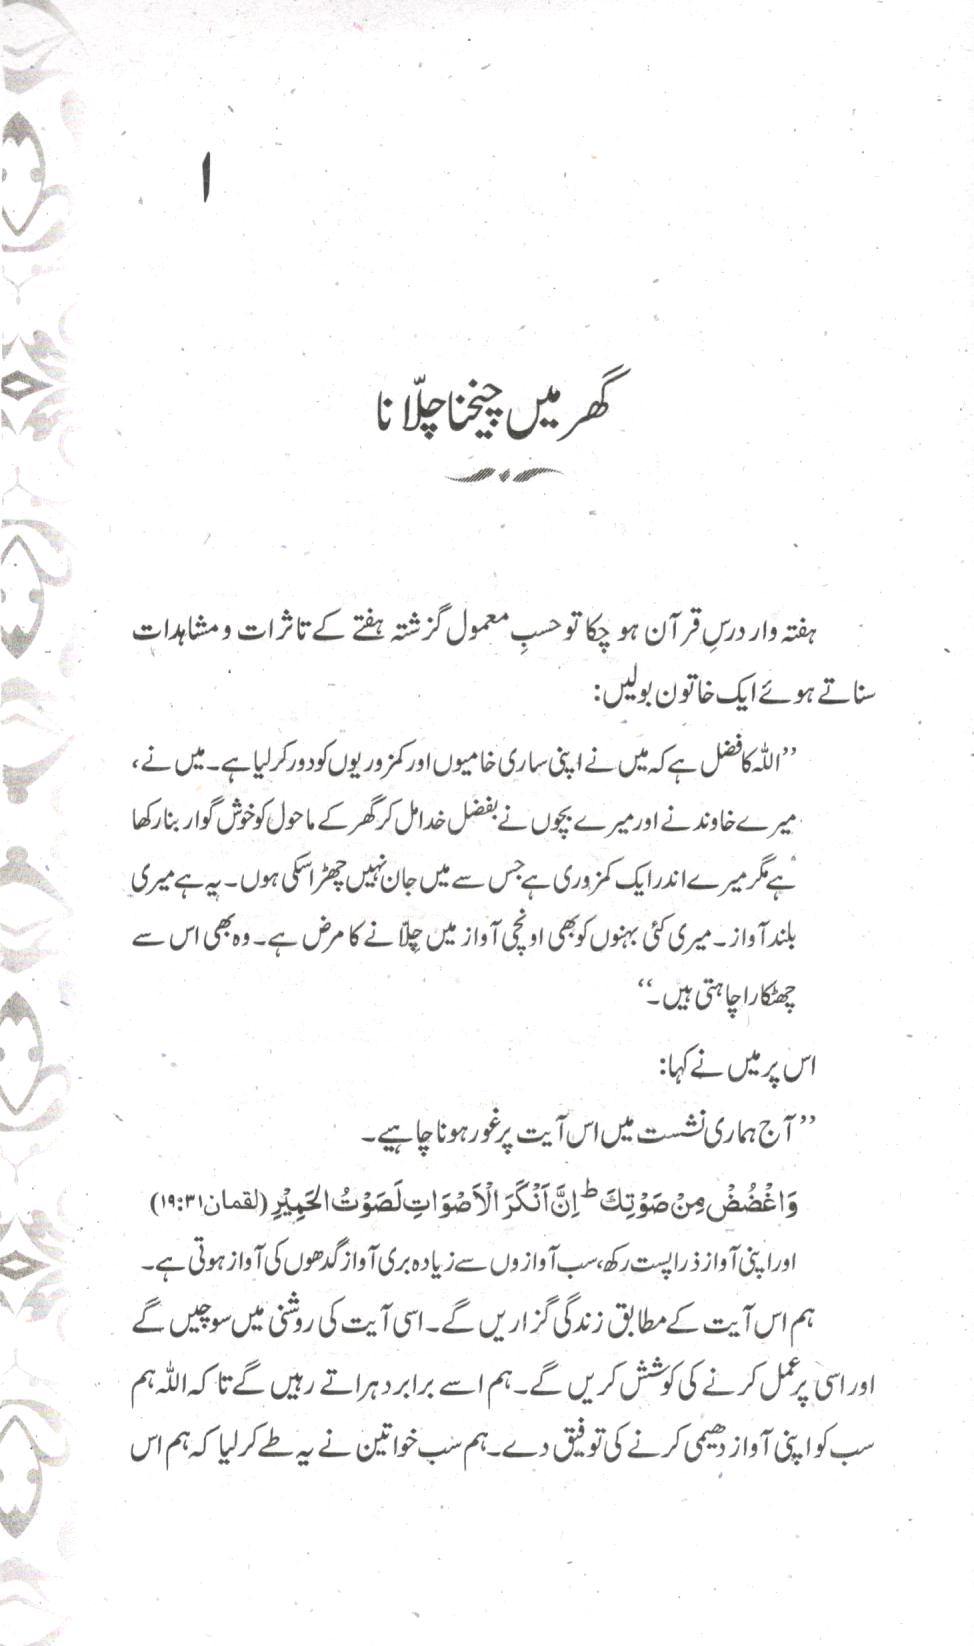 ۱
گھر میں چیخنا چلّانا
ہفتہ وار درسِ قرآن ہو چکا تو حسبِ معمول گزشتہ ہفتے کے تاثرات و مشاہدات
سناتے ہوئے ایک خاتون بولیں:
’’اللہ کا فضل ہے کہ میں نے اپنی ساری خامیوں اور کمزوریوں کو دور کر لیا ہے۔ میں نے،
میرے خاوند نے اور میرے بچوں نے بفضل خدا مل کر گھر کے ماحول کو خوش گوار بنا رکھا
ہے مگر میرے اندر ایک کمزوری ہے جس سے میں جان نہیں چھڑا سکی ہوں۔ یہ ہے میری
بلند آواز۔ میری کئی بہنوں کو بھی اونچی آواز میں چلّانے کا مرض ہے۔ وہ بھی اس سے
چھٹکارا چاہتی ہیں۔‘‘
اس پر میں نے کہا:
’’آج ہماری نشست میں اس آیت پر غور ہونا چاہیے۔
وَاغْضُضْ مِنْ صَوْتِكَ ؕ اِنَّ اَنْكَرَ الْاَصْوَاتِ لَصَوْتُ الْحَمِيْرِ (لقمان ۱۹:۳۱)
اور اپنی آواز ذرا پست رکھ، سب آوازوں سے زیادہ بری آواز گدھوں کی آواز ہوتی ہے۔
ہم اس آیت کے مطابق زندگی گزاریں گے۔ اسی آیت کی روشنی میں سوچیں گے
اور اسی پر عمل کرنے کی کوشش کریں گے۔ ہم اسے برابر دہراتے رہیں گے تا کہ اللہ ہم
سب کو اپنی آواز دھیمی کرنے کی توفیق دے۔ ہم سب خواتین نے یہ طے کر لیا کہ ہم اس